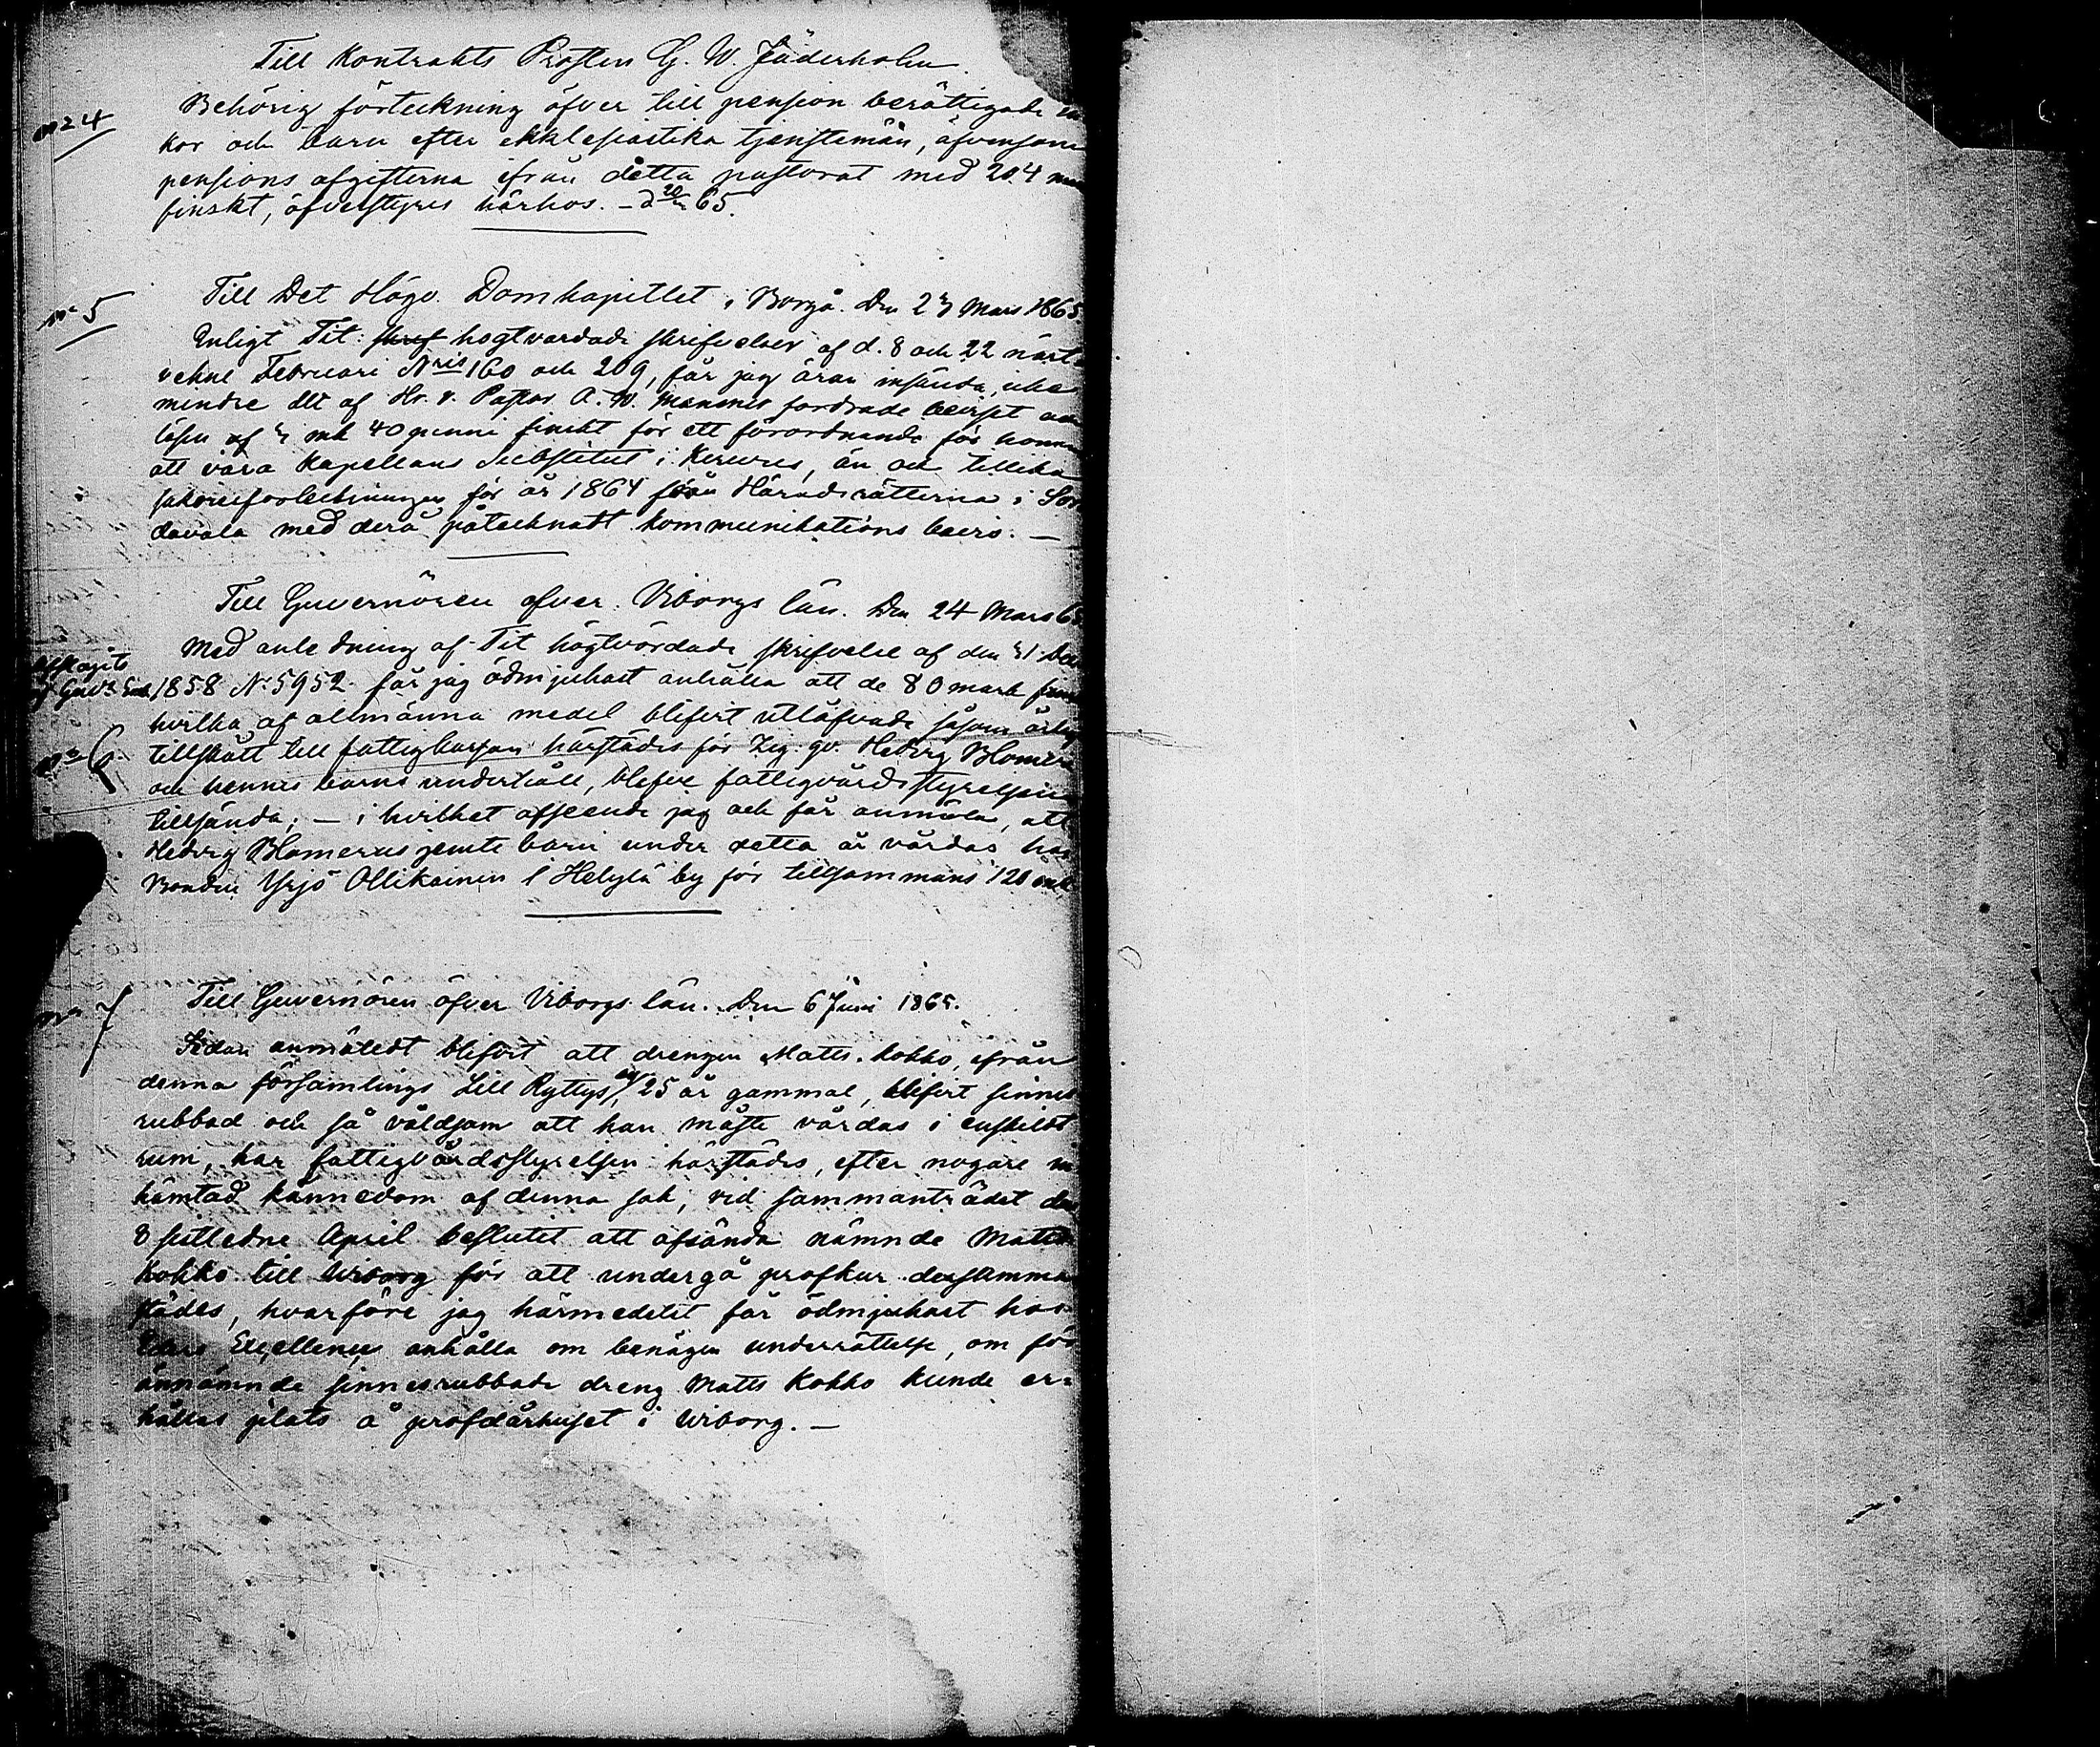 Till Kontrakts Prosten G. W. Jäderholm
No 4
Behörig förteckning öfver till pension berättigade en
kor och barn efter ekklesiastika tjenstemän, äfvensom
pensions afgifterna ifrån detta pastorat med 204
finskt, öfverstyres härhos. – d 20 65.
No 5
Till Det Högv. Domkapitlet i Borgå. Den 23 Mars 1865.
Enligt Tit: skref högtvördade skrifvelser af d. 8 och 22 näst
vekne Februari Nris 160 och 209, får jag äran insända, icke
mindre det af Hr. v. Pastor A. W. fordrade beviset om
lösen af 3 mk 40 penni finskt för ett förordnande för honom
att vara Kapellans Substitut i, än och tillika
för år 1864 från Häradsrätterna i Sor
davala med derå påtecknatt kommunikations bevis. –
Till Guvernören öfver Viborgs län. Den 24 Mars 65
Med anledning af Tit högtvördade skrifvelse af den 31 Dec
1858 No 5952 får jag ödmjukast anhålla att de 80 mark
hvilka af allmänna medel blifvit utlofvade såsom årlig
No 6
tillskått till fattigkassan härstädes för Zig. qv. Hedvig Blomerus
och hennes barns underhåll, blefve fattigvårdsstyrelsen
tillsända; – i hvilket afseende jag och får anmäla, att
Hedvig Blomerus jemte barn under detta år vårdas hos
Bonden Yrjö Ollikainen i Helylä by för tillsammans 120 mk
No 7
Till Guvernören öfver Viborgs län. Den 6 Juni 1865.
Sedan anmäledt blifvit att drengen Matts Kokko, ifrån
denna församlings Lill Ryttys by 25 år gammal, blifvit sinnes
rubbad och så våldsam att han måste vårdas i enskildt
rum, har fattigvårdsstyrelsen härstädes, efter nogare in
hämtad kännedom af denna sak, vid sammanträdet den
8 sistledne April beslutit att afsända nämnde Matts
Kokko till Wiborg för att undergå profkur dersamma
städes, hvarföre jag härmedelst får ödmjukast hos
Eders Excellence anhålla om benägen underrättelse, om för
ännämnde sinnesrubbade dreng Matts Kokko kunde er-
hållas plats å profdårhuset i Wiborg. –